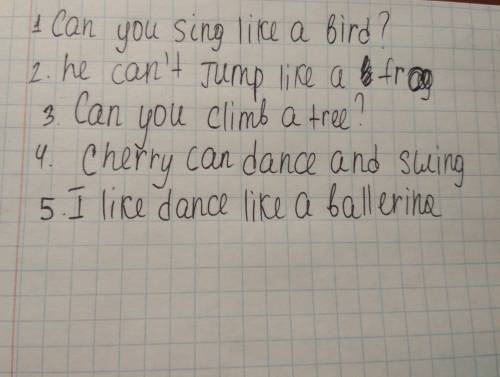 1 Can you sing like a bird?
2. he can't Jump like a frog
3. Can you climb a tree?
4. Cherry can dance and swing
5. I like dance like a ballerina